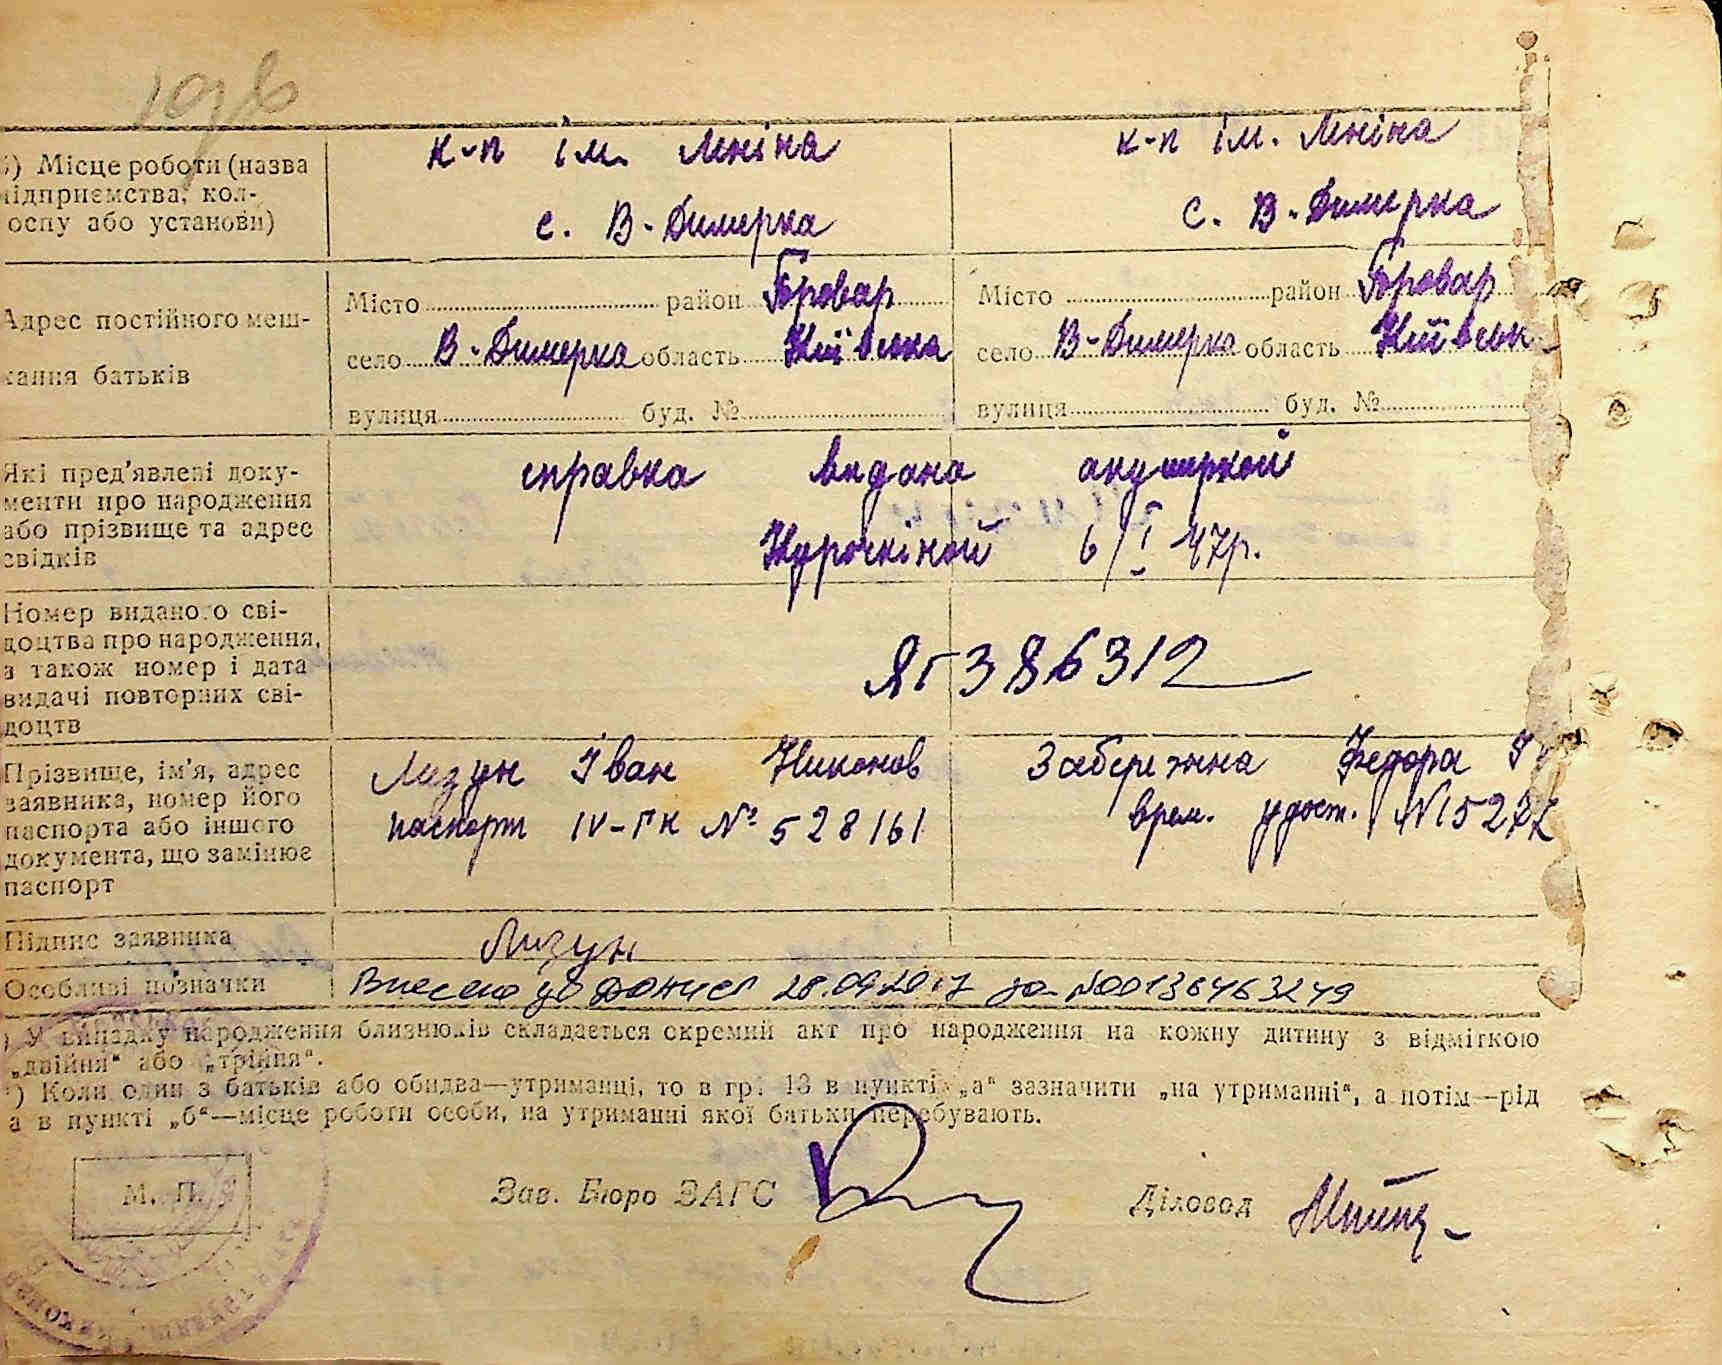 б) Місце роботи (назва
підприємства, кол-
оспу або установи)
к-п ім. Леніна
с. В-Димерка
к-п ім. Леніна
с. В-Димерка
Адрес постійного меш-
кання батьків
Місто район Бровар
село В-Димерка область Київська
вулиця буд. №
Місто район Бровар
село В-Димерка область Київськ
вулиця буд. №
Які пред'явлені доку-
менти про народження
або прізвище та адрес
свідків
справка видана акушеркой
Курочкіной 6/I 47р.
Номер виданого сві-
доцтва про народження,
а також номер і дата
видачі повторних сві-
доцтв
ЯГ 386312
Прізвище, ім'я, адрес
заявника, номер його
паспорта або іншого
документа, що замінює
паспорт
Лизун Іван Никонов
паспорт IV-ГК № 528161
Забережна Федора
врем. удост. N
Підпис заявника
Лизун
Особливі позначки
Внесено до 28.09.2017 за №00136463249
) У випадку народження близнюків складається окремий акт про народження на кожну дитину з відміткою
„двійня“ або „трійня“.
) Коли один з батьків або обидва—утриманці, то в гр. 13 в пункті „а“ зазначити „на утриманні“, а потім—рід
а в пункті „б“—місце роботи особи, на утриманні якої батьки перебувають.
М. П.
Зав. Бюро ЗАГС
Діловод